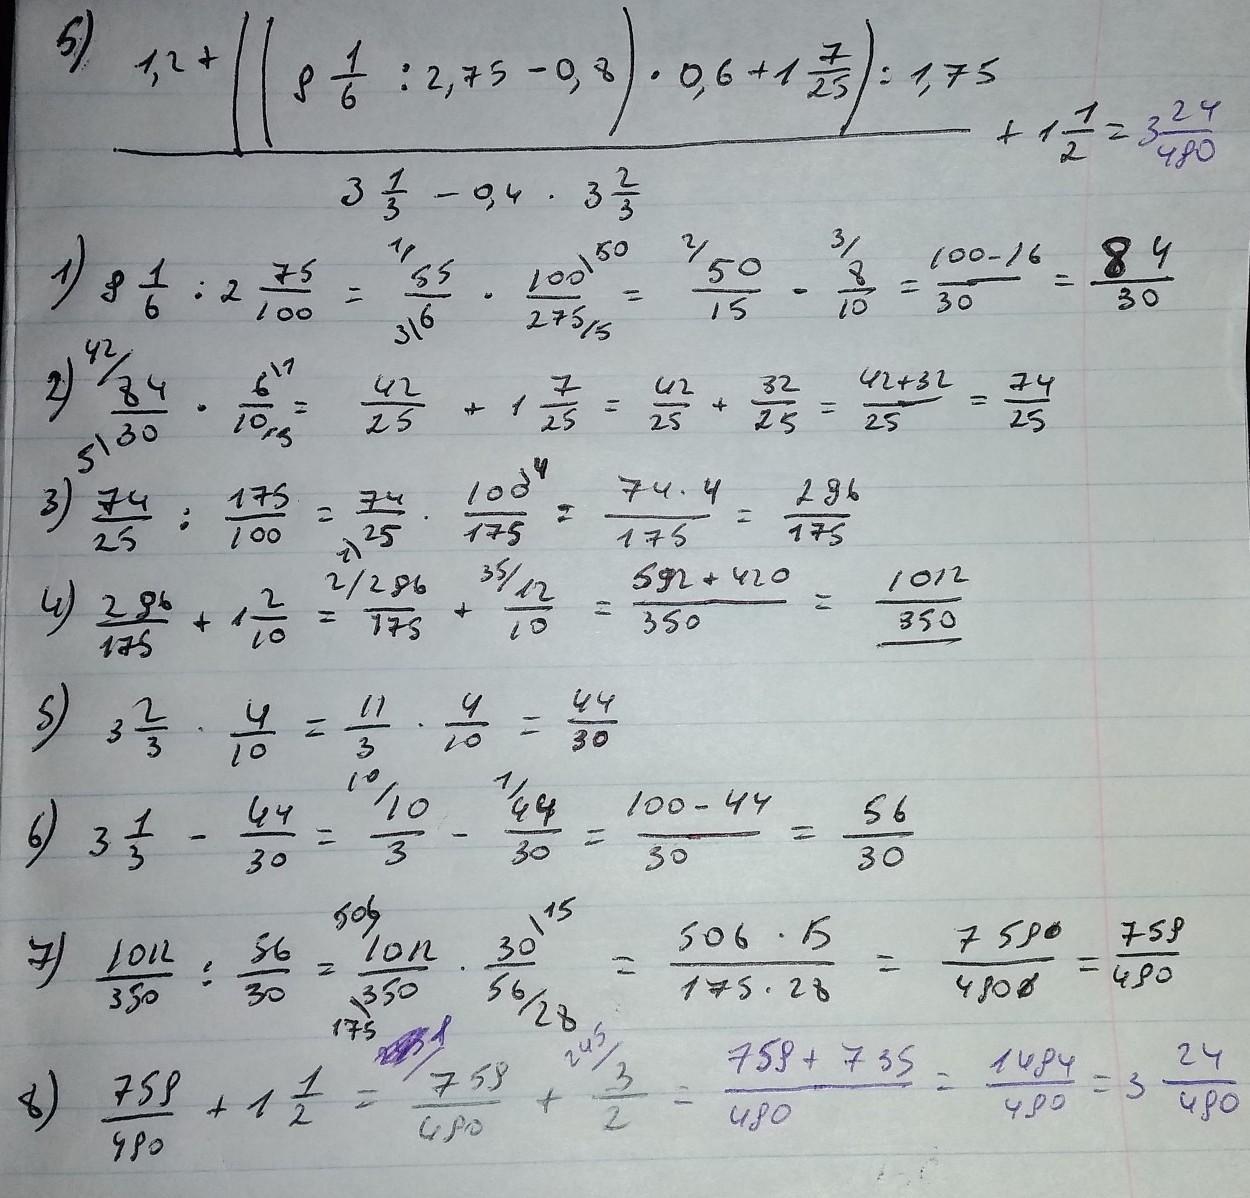 5) (1,2 + ((9 1/6 : 2,75 - 0,8) · 0,6 + 1 7/25) : 1,75) / (3 1/3 - 0,4 · 3 2/3) + 1 1/2 = 3 24/490
1) 9 1/6 : 2 75/100 = 1/ 55/6 3\ · 100/275 \50 /15 = 2/ 50/15 - 3/ 8/10 = (100-16)/30 = 84/30
2) 42/ 84/30 5\ · 6/10 \1 /5 = 42/25 + 1 7/25 = 42/25 + 32/25 = (42+32)/25 = 74/25
3) 74/25 : 175/100 = 74/25 1) · 100/175 \4 = (74·4)/175 = 296/175
4) 296/175 + 1 2/10 = 2/ 296/175 + 35/ 12/10 = (592+420)/350 = 1012/350
5) 3 2/3 · 4/10 = 11/3 · 4/10 = 44/30
6) 3 1/3 - 44/30 = 10/ 10/3 - 1/ 44/30 = (100-44)/30 = 56/30
7) 1012/350 : 56/30 = 506\ 1012/350 175\ · 30/56 \15 /28 = (506·15)/(175·28) = 7590/4900 = 759/490
8) 759/490 + 1 1/2 = 1/ 759/490 + 245/ 3/2 = (759+735)/490 = 1494/490 = 3 24/490